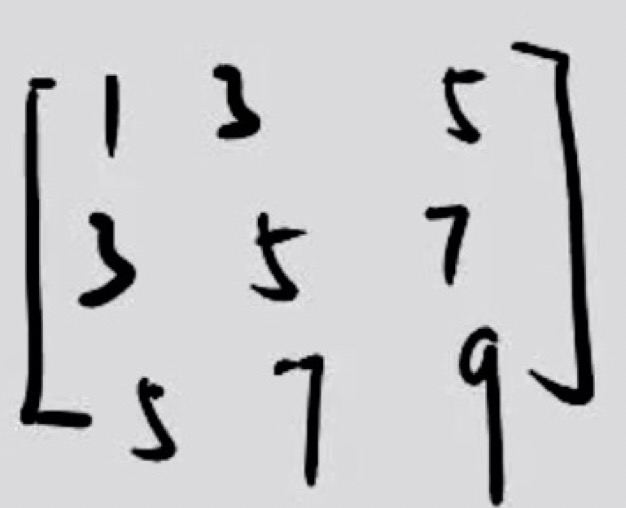 1 3 5
3 5 7
5 7 9